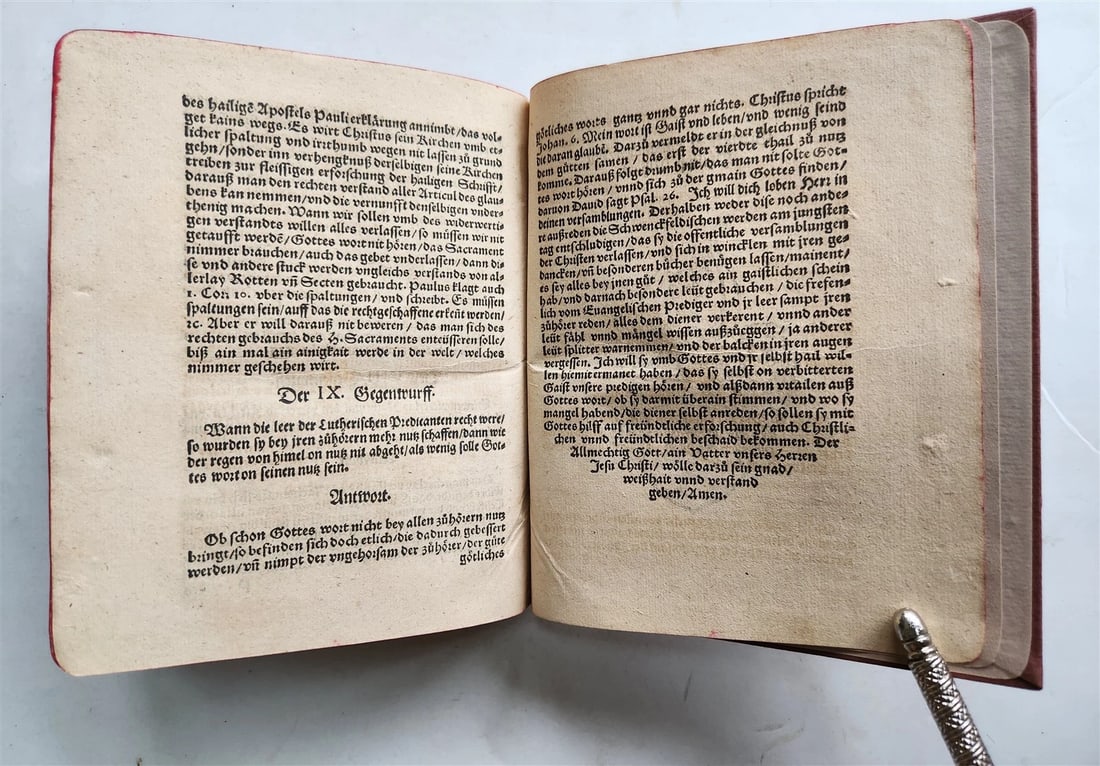 des hailigẽ Apostels Pauli erklärung annimbt/das vol-
get kains wegs. Es wirt Christus sein Kirchen vmb et-
licher spaltung vnd irrthumb wegen nit lassen zů grund
gehn/sonder inn verhengknuß derselbigen seine Kirchen
treiben zur fleissigen erforschung der hailigen Schrifft/
darauß man den rechten verstand aller Articul des glau-
bens kan nemmen/vnd die vernunfft denselbigen vnder-
thenig machen. Wann wir sollen vmb des widerwerti-
gen verstandts willen alles verlassen/so müssen wir nit
getaufft werdẽ/Gottes wort nit hören/das Sacrament
nimmer brauchen/auch das gebet vnderlassen/dann di-
se vnd andere stuck werden vngleichs verstands von al-
lerlay Rotten vñ Secten gebraucht. Paulus klagt auch
1. Cor. 10. vber die spaltungen/vnd schreibt. Es müssen
spaltungen sein/auff das die rechtgeschaffene erkeñt werden/
ꝛc. Aber er will darauß nit beweren/das man sich des
rechten gebrauchs des H. Sacraments enteüsseren solle/
biß ain mal ain ainigkait werde in der welt/welches
nimmer geschehen wirt.
Der IX. Gegentwurff.
Wann die leer der Lutherischen Predicanten recht were/
so wurden sy bey jren zůhörern mehr nutz schaffen/dann wie
der regen von himel on nutz nit abgeht/als wenig solle Got-
tes wort on seinen nutz sein.
Antwort.
Ob schon Gottes wort nicht bey allen zůhörern nutz
bringt/so befinden sich doch etlich/die dadurch gebessert
werden/vñ nimpt der vngehorsam der zůhörer/der güte
götliches
götliches worts gantz vnnd gar nichts. Christus spricht
Johan. 6. Mein wort ist Gaist vnd leben/vnd wenig seind
die daran glaubẽ. Darzů vermeldet er in der gleichnuß von
dem gůtten samen/das erst der vierdte thail zů nutz
komme. Darauß folgt drumb nit/das man nit solte Got-
tes wort hören/vnnd sich zů der gmain Gottes finden/
daruon Dauid sagt Psal. 26. Ich will dich loben Herr in
deinen versamblungen. Derhalben weder dise noch ande-
re außreden die Schwenckfeldischen werden am jungsten
tag entschludigen/das sy die offentliche versamblungen
der Christen verlassen/vnd sich in wincklen mit jren ge-
dancken/vñ besonderen bücher benügen lassen/mainent/
es sey alles bey jnen gůt/welches ain gaistlichen schein
hab/vnd darnach besondere leüt gebrauchen/die frefen-
lich vom Euangelischen Prediger vnd jr leer sampt jren
zůhörer reden/alles dem diener verkerent/vnnd ander
leüt fähl vnnd mängel wissen außzůeggen/ja anderer
leüt splitter warnemmen/vnd der balcken in jren augen
vergessen. Ich will sy vmb Gottes vnd jr selbst hail wil-
len hiemit ermanet haben/das sy selbst on verbitterten
Gaist vnsere predigen hören/vnd alßdann vrtailen auß
Gottes wort/ob sy darmit überain stimmen/vnd wo sy
mangel habend/die diener selbst anreden/so sollen sy mit
Gottes hilff auf freündtliche erforschung/auch Christli-
chen vnd freündtlichen beschaid bekommen. Der
Allmechtig Gott/ain Vatter vnsers Herren
Jesu Christi/wölle darzů sein gnad/
weißhait vnnd verstand
geben/Amen.